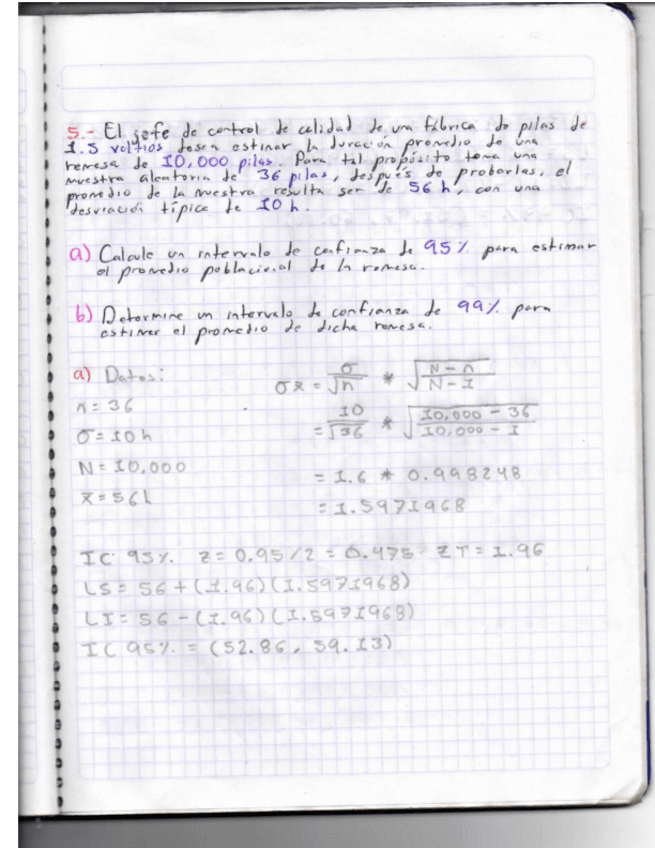 5.- El jefe de control de calidad de una fábrica de pilas de
1.5 voltios desea estimar la duración promedio de una
remesa de 10,000 pilas. Para tal propósito toma una
muestra aleatoria de 36 pilas, después de probarlas, el
promedio de la muestra resulta ser de 56 h, con una
desviación típica de 10 h.
a) Calcule un intervalo de confianza de 95% para estimar
el promedio poblacional de la remesa.
b) Determine un intervalo de confianza de 99% para
estimar el promedio de dicha remesa.
a) Datos:
n = 36
σ = 10 h
N = 10,000
x̄ = 56 h
σx̄ = σ/√n * √(N - n / N - 1)
= 10/√36 * √(10,000 - 36 / 10,000 - 1)
= 1.6 * 0.998248
= 1.5971968
IC 95% z = 0.95/2 = 0.475 ZT = 1.96
LS = 56 + (1.96)(1.5971968)
LI = 56 - (1.96)(1.5971968)
IC 95% = (52.86, 59.13)